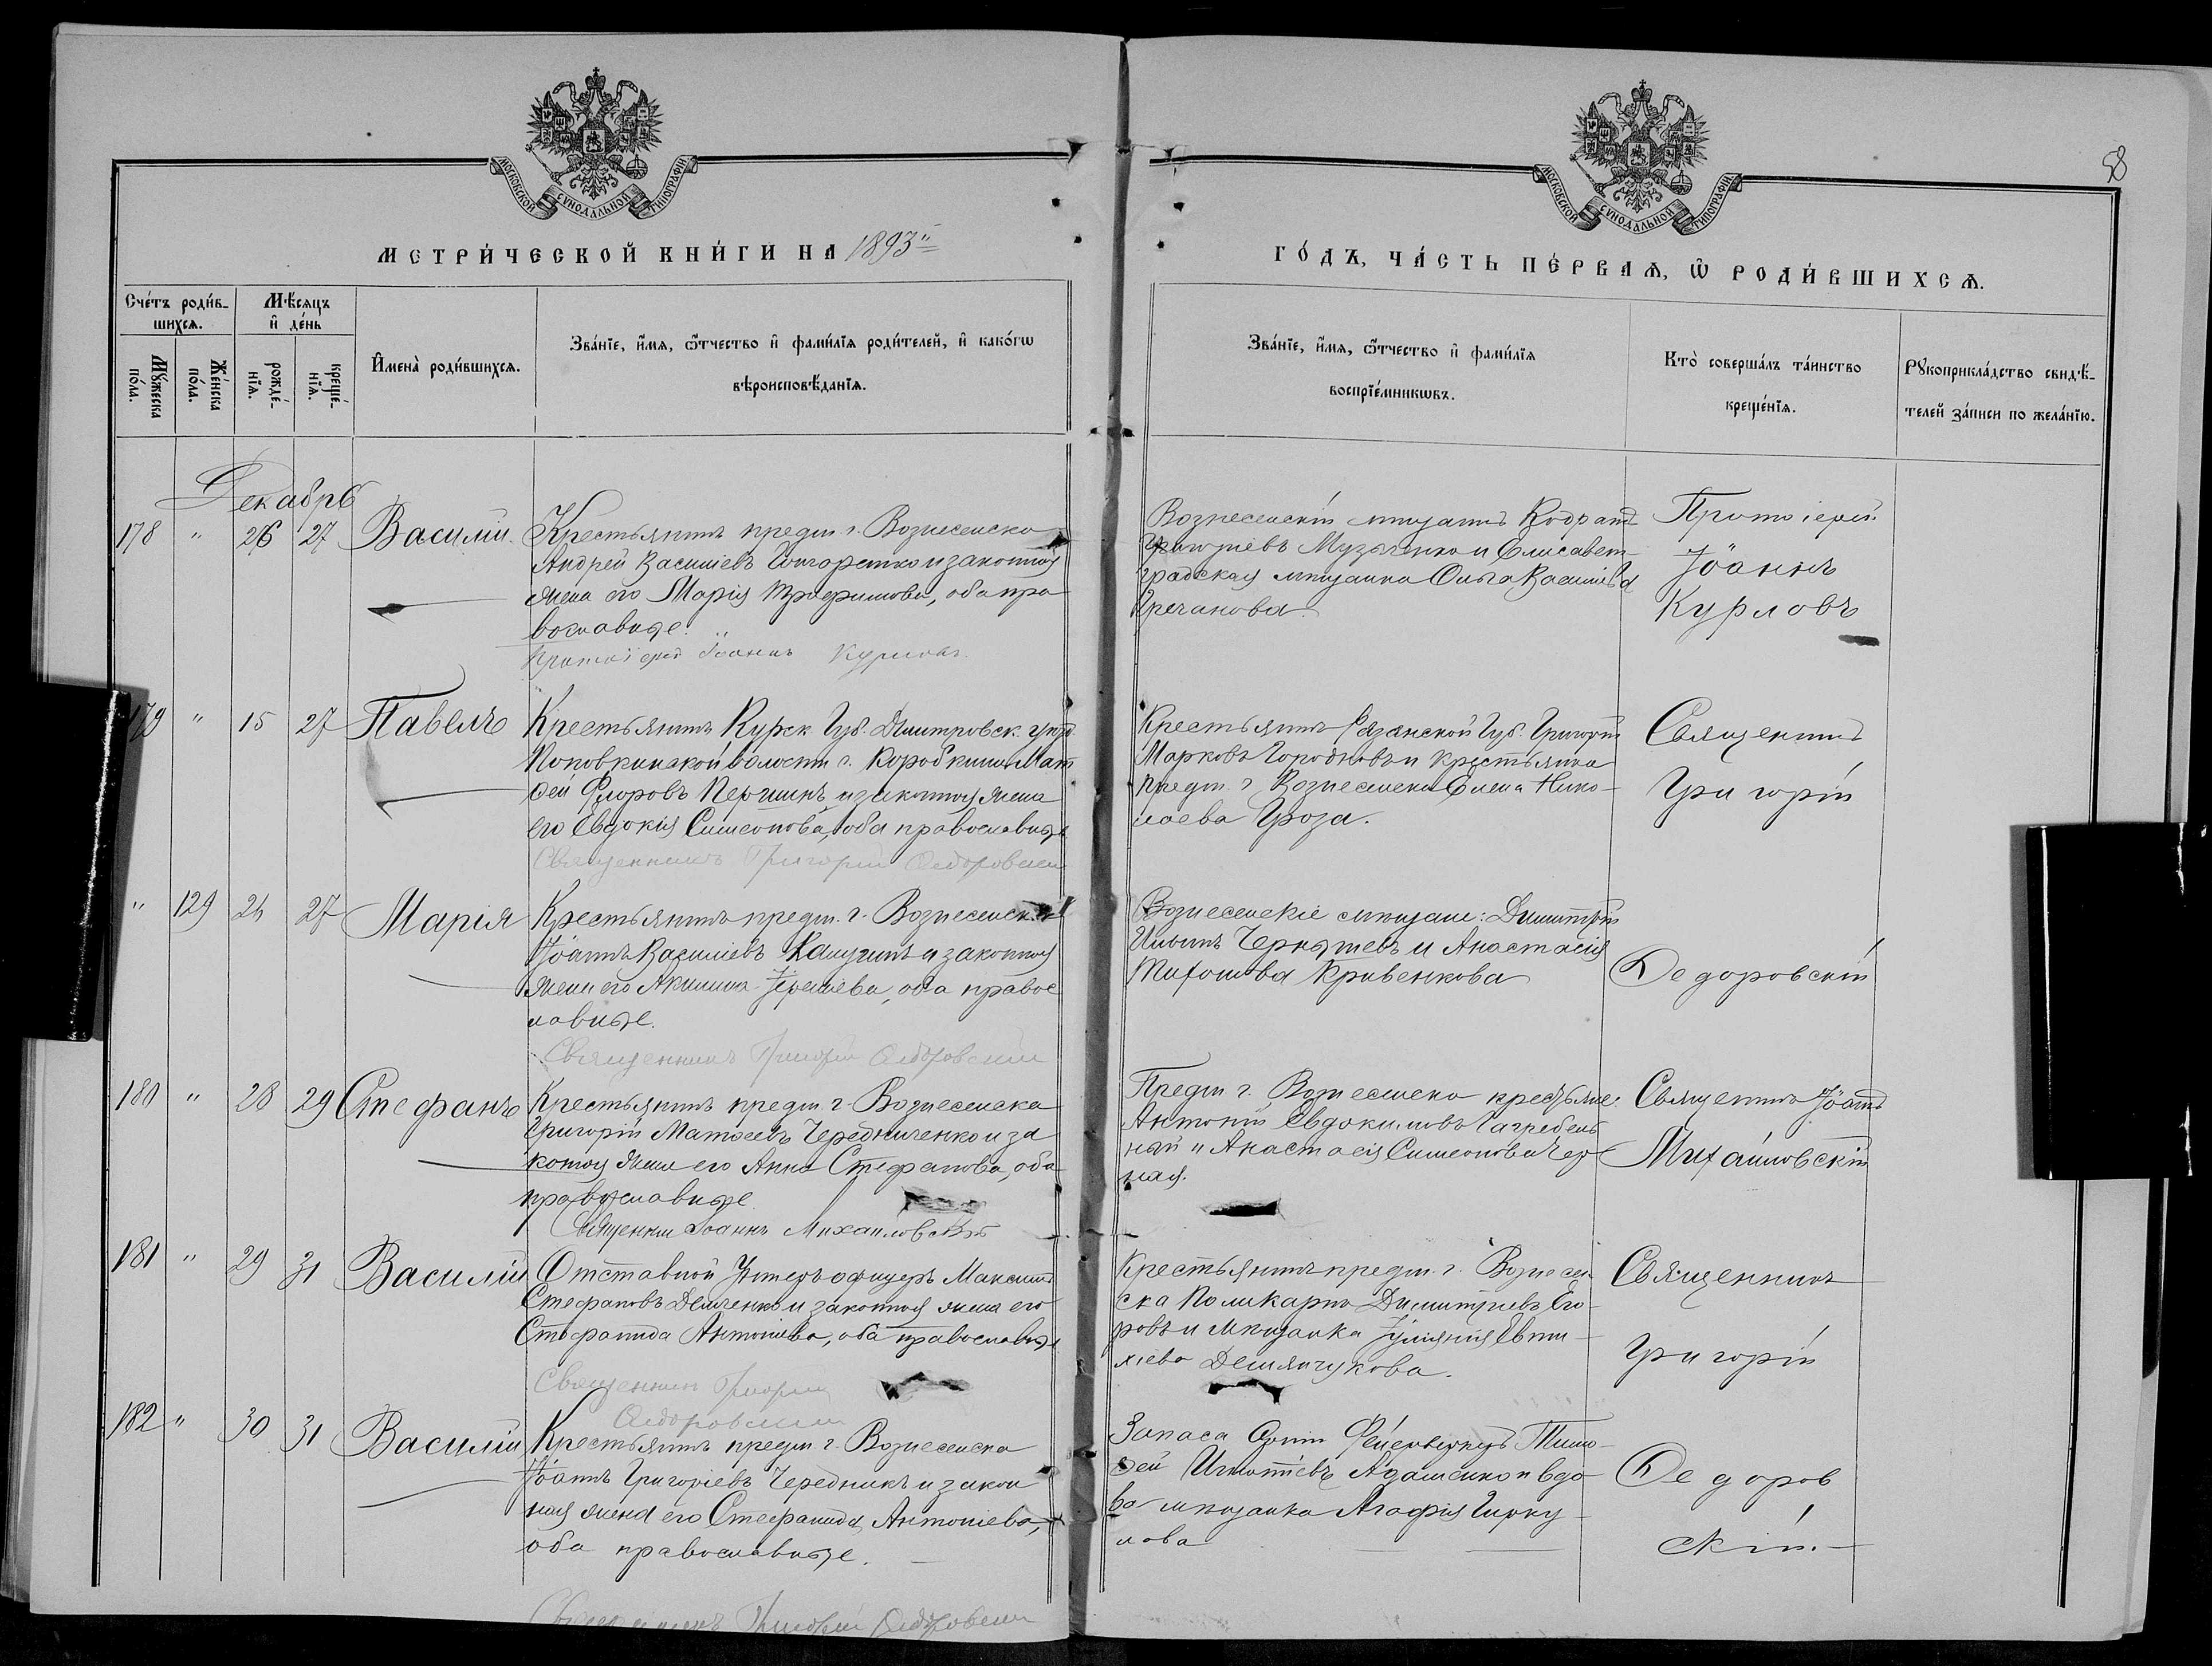 58
МОСКОВСКОЙ СѴНОДАЛЬНОЙ ТИПОГРАФІИ
МОСКОВСКОЙ СѴНОДАЛЬНОЙ ТИПОГРАФІИ
МЕТРИ́ЧЕСКОЙ КНИ́ГИ НА 1893й
ГО́ДЪ, ЧА́СТЬ ПЕ́РВАѦ, Ѽ РОДИ́ВШИХСѦ.
Сче́тъ роди́в-
шихсѧ.
Мꙋ́жеска по́ла.
Же́нска по́ла.
Мѣ́сѧцъ
и҆ де́нь
рожде́-нїѧ.
креще́-нїѧ.
И҆мена̀ роди́вшихсѧ.
Зва́нїе, и҆́мѧ, ѻ҆́тчество и҆ фами́лїѧ роди́телей, и҆ како́гѡ
вѣроисповѣ́данїѧ.
Зва́нїе, и҆́мѧ, ѻ҆́тчество и҆ фами́лїѧ
воспрїе́мникѡвъ.
Кто̀ соверша́лъ та́инство
креще́нїѧ.
Рꙋкоприкла́дство свидѣ́-
телей за́писи по жела́нїю.
Декабрь
178 " 26 27 Василій
Крестьянинъ предм. г. Вознесенска
Андрей Василіевъ и законная
жена его Марія Трофимова, оба пра
вославные.
Протоіерей Іоаннъ Курловъ
Вознесенскій мѣщанинъ Кодратъ
Григоріевъ Музыченко и Елисавет-
градская мѣщанка Ольга Василіева
Кречанова.
Протоіерей
Іоаннъ
Курловъ
179 " 15 27 Павелъ
Крестьянинъ Курск. Губ. Дмитровск. уѣзд.
Поповкинской волости с. Коробкина Мат
ѳей Флоровъ и законная жена
его Евдокія Симеонова, оба православные
Священникъ Григорій Ѳедоровскій
Крестьянинъ Рязанской Губ. Григорій
Марковъ Городновъ и крестьянка
предм. г. Вознесенска Елена Нико-
лаева Гроза.
Священникъ
Григорій
" 129 24 27 Марія
Крестьянинъ предм. г. Вознесенска
Іоаннъ Василіевъ Калугинъ и законная
жена его Акилина оба правос
лавные.
Священникъ Григорій Ѳедоровскій
Вознесенскіе мѣщане: Димитрій
Ильинъ Чернышевъ и Анастасія
Тихонова Кривенкова
Ѳедоровскій
180 " 28 29 Стефанъ
Крестьянинъ предм. г. Вознесенска
Григорій Матѳеевъ Чередниченко и за
конная жена его Анна Стефанова, оба
православные
Священникъ Іоаннъ Михайловскій
Предм. г. Вознесенска крестьяне:
Антоній Евдокимовъ Загребель
ный и Анастасія Симеонова Чер
ная.
Священникъ Іоаннъ
Михайловскій
181 " 29 31 Василій
Отставной Унтеръ офицеръ Максимъ
Стефановъ Демченко и законная жена его
Стефанида Антоніева, оба православные
Священникъ Григорій
Ѳедоровскій
Крестьянинъ предм. г. Вознесен
ска Поликарпъ Димитріевъ Его-
ровъ и мѣщанка Іуліанія Евти-
хіева Демянчукова.
Священникъ
Григорій
182 " 30 31 Василій
Крестьянинъ предм. г. Вознесенска
Іоаннъ Григоріевъ Чередникъ и закон
ная жена его Стефанида Антоніева,
оба православные.
Священникъ Григорій Ѳедоровскій
Запаса Арміи Фейерверкеръ Тимо-
ѳей Игнатіевъ Адаменко и вдо-
ва мѣщанка Агафія Чирку
лова
Ѳедоров
скій.